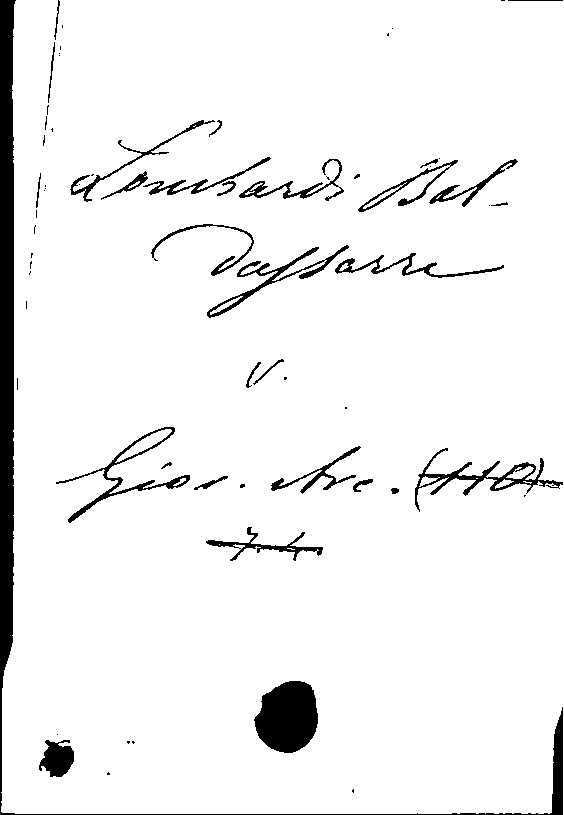 Lombardi Bal-
dassarre
v.
Giov. Arc. (110)
7. 4.